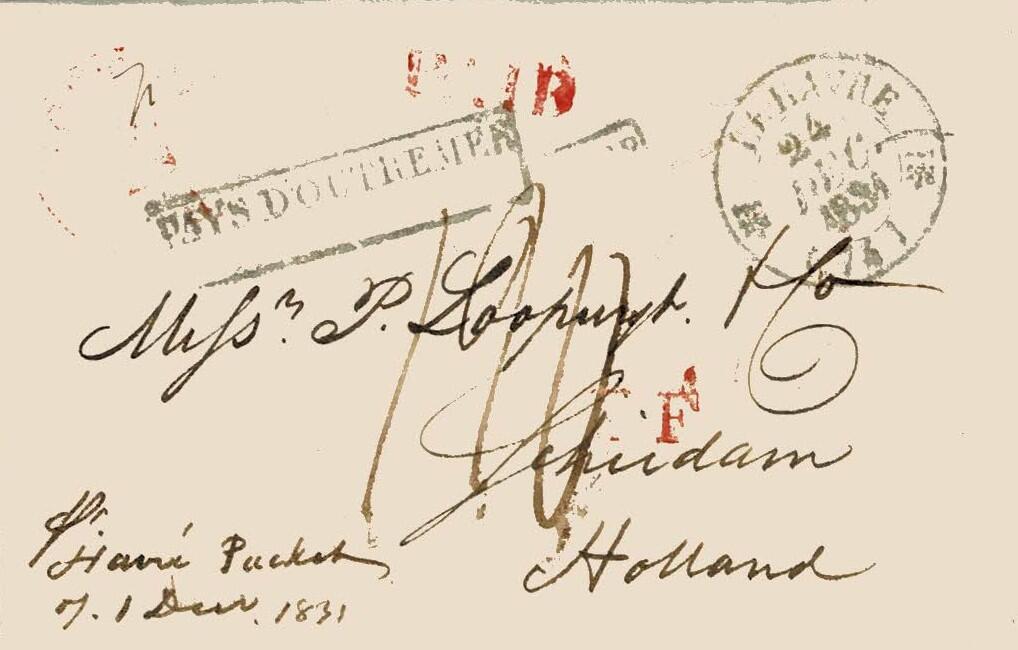 PAID
PAYS D'OUTREMER
LE HAVRE
24
DEC
1831
(74)
Messrs. P. Loopuyt. & Co
F
Schiedam
Holland
Havre Packet
of 1 Decr. 1831